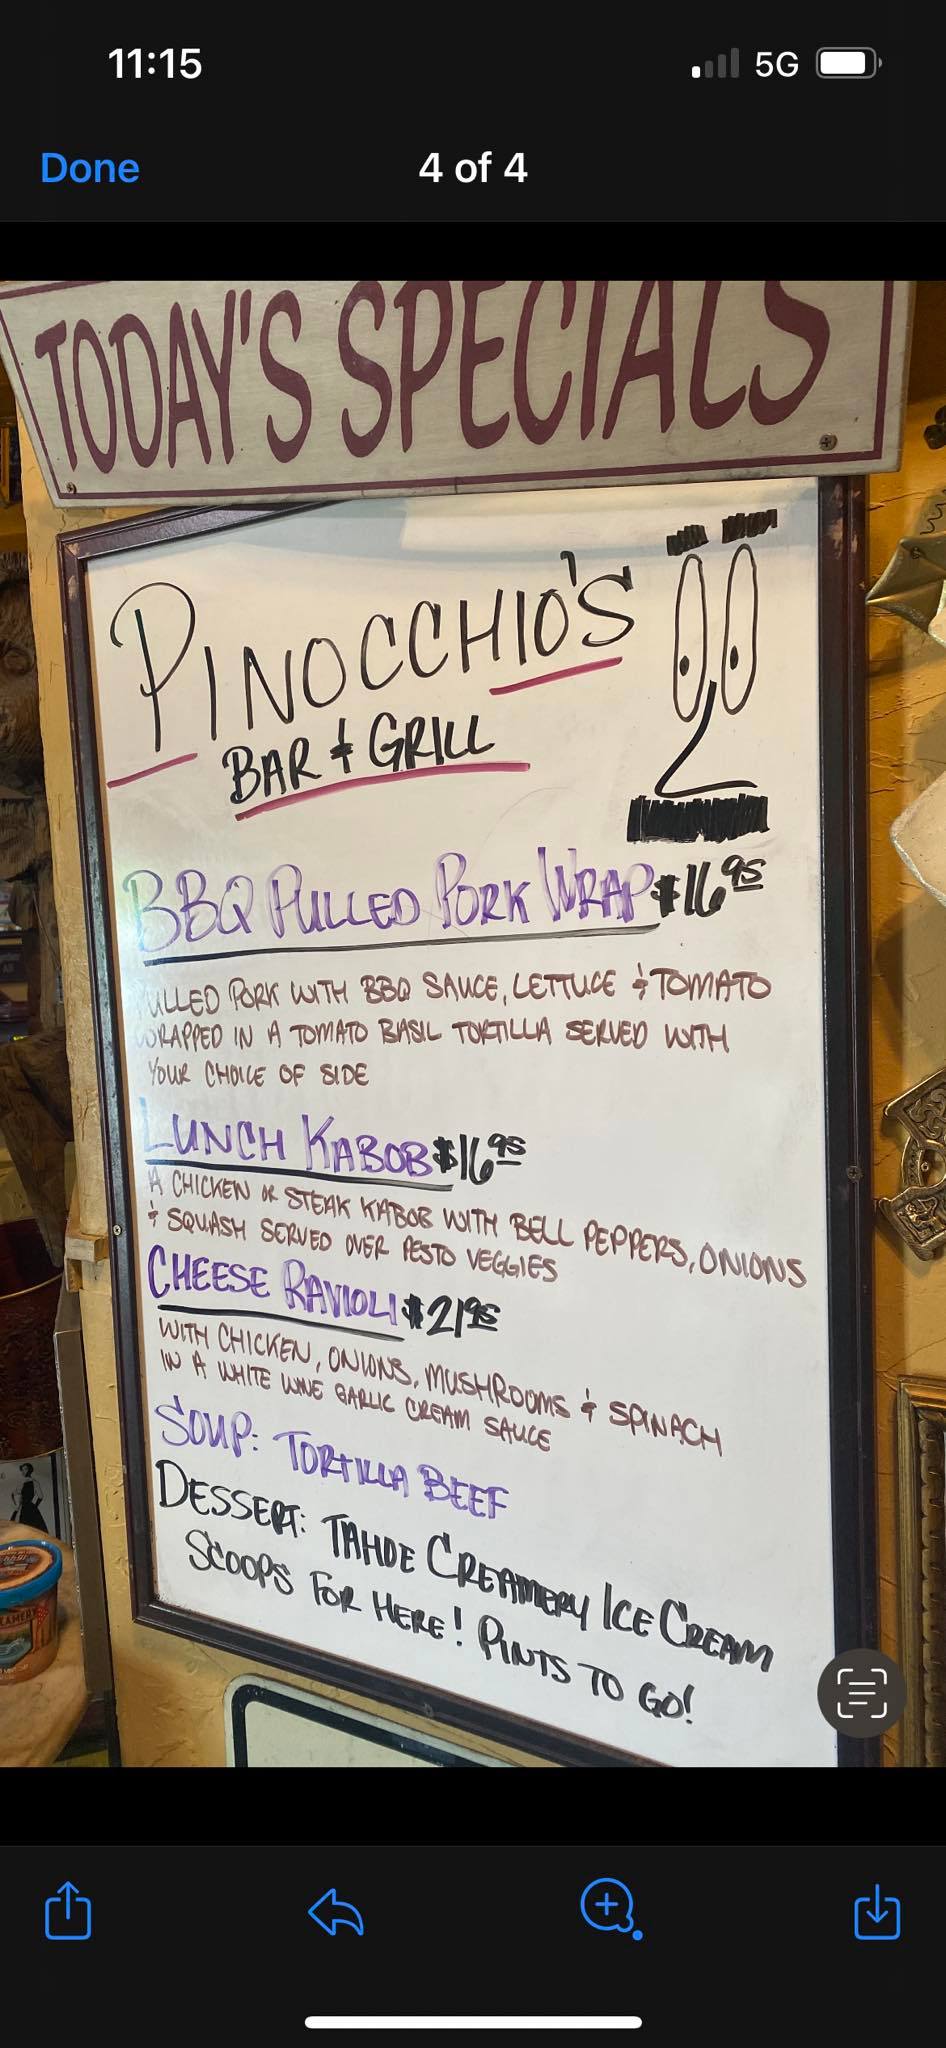 11:15
5G
Done
4 of 4
TODAY'S SPECIALS
PINOCCHIO'S
BAR & GRILL
BBQ PULLED PORK WRAP $16.95
PULLED PORK WITH BBQ SAUCE, LETTUCE & TOMATO
WRAPPED IN A TOMATO BASIL TORTILLA SERVED WITH
YOUR CHOICE OF SIDE
LUNCH KABOB $16.95
A CHICKEN OR STEAK KABOB WITH BELL PEPPERS, ONIONS
& SQUASH SERVED OVER PESTO VEGGIES
CHEESE RAVIOLI $21.95
WITH CHICKEN, ONIONS, MUSHROOMS & SPINACH
IN A WHITE WINE GARLIC CREAM SAUCE
SOUP: TORTILLA BEEF
DESSERT: TAHOE CREAMERY ICE CREAM
SCOOPS FOR HERE! PINTS TO GO!